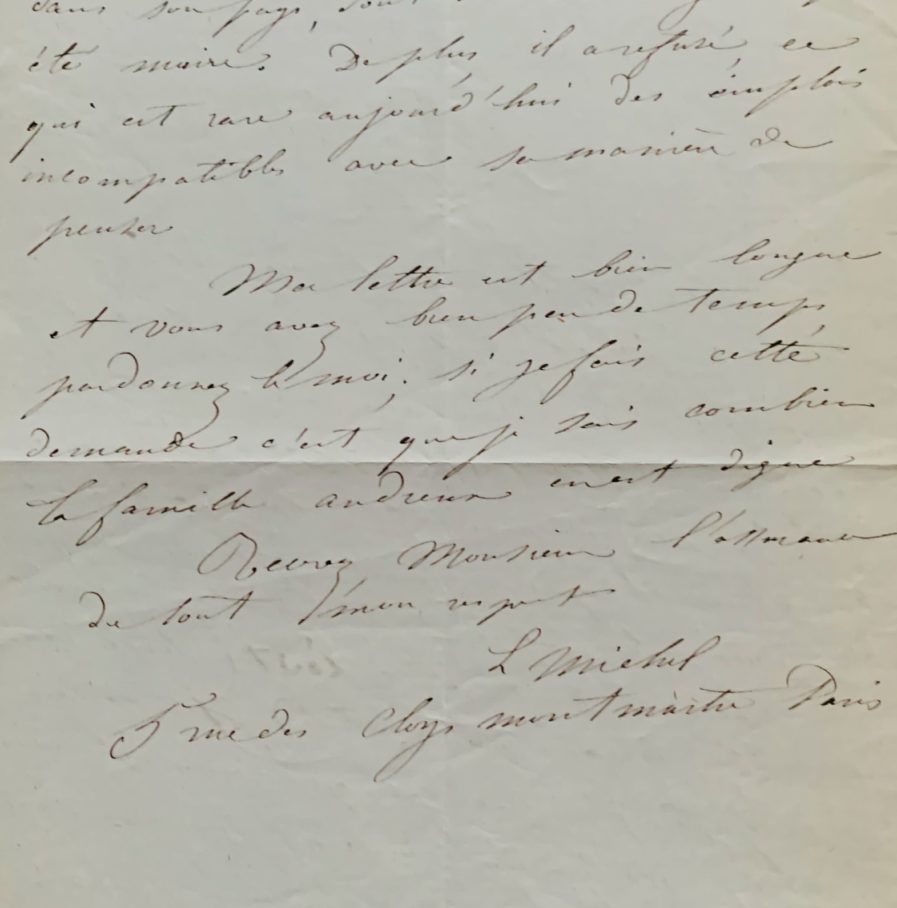 dans son pays, 
été maire. De plus il a refusé ce
qui est rare aujourd'hui des emplois
incompatibles avec sa manière de
penser
Ma lettre est bien longue
et vous avez bien peu de temps
pardonnez le moi; si je fais cette
demande c'est que je sais combien
la famille andrieux en est digne
Recevez Monsieur l'assurance
de tout mon respect
L Michel
5 rue des Cloys montmartre Paris